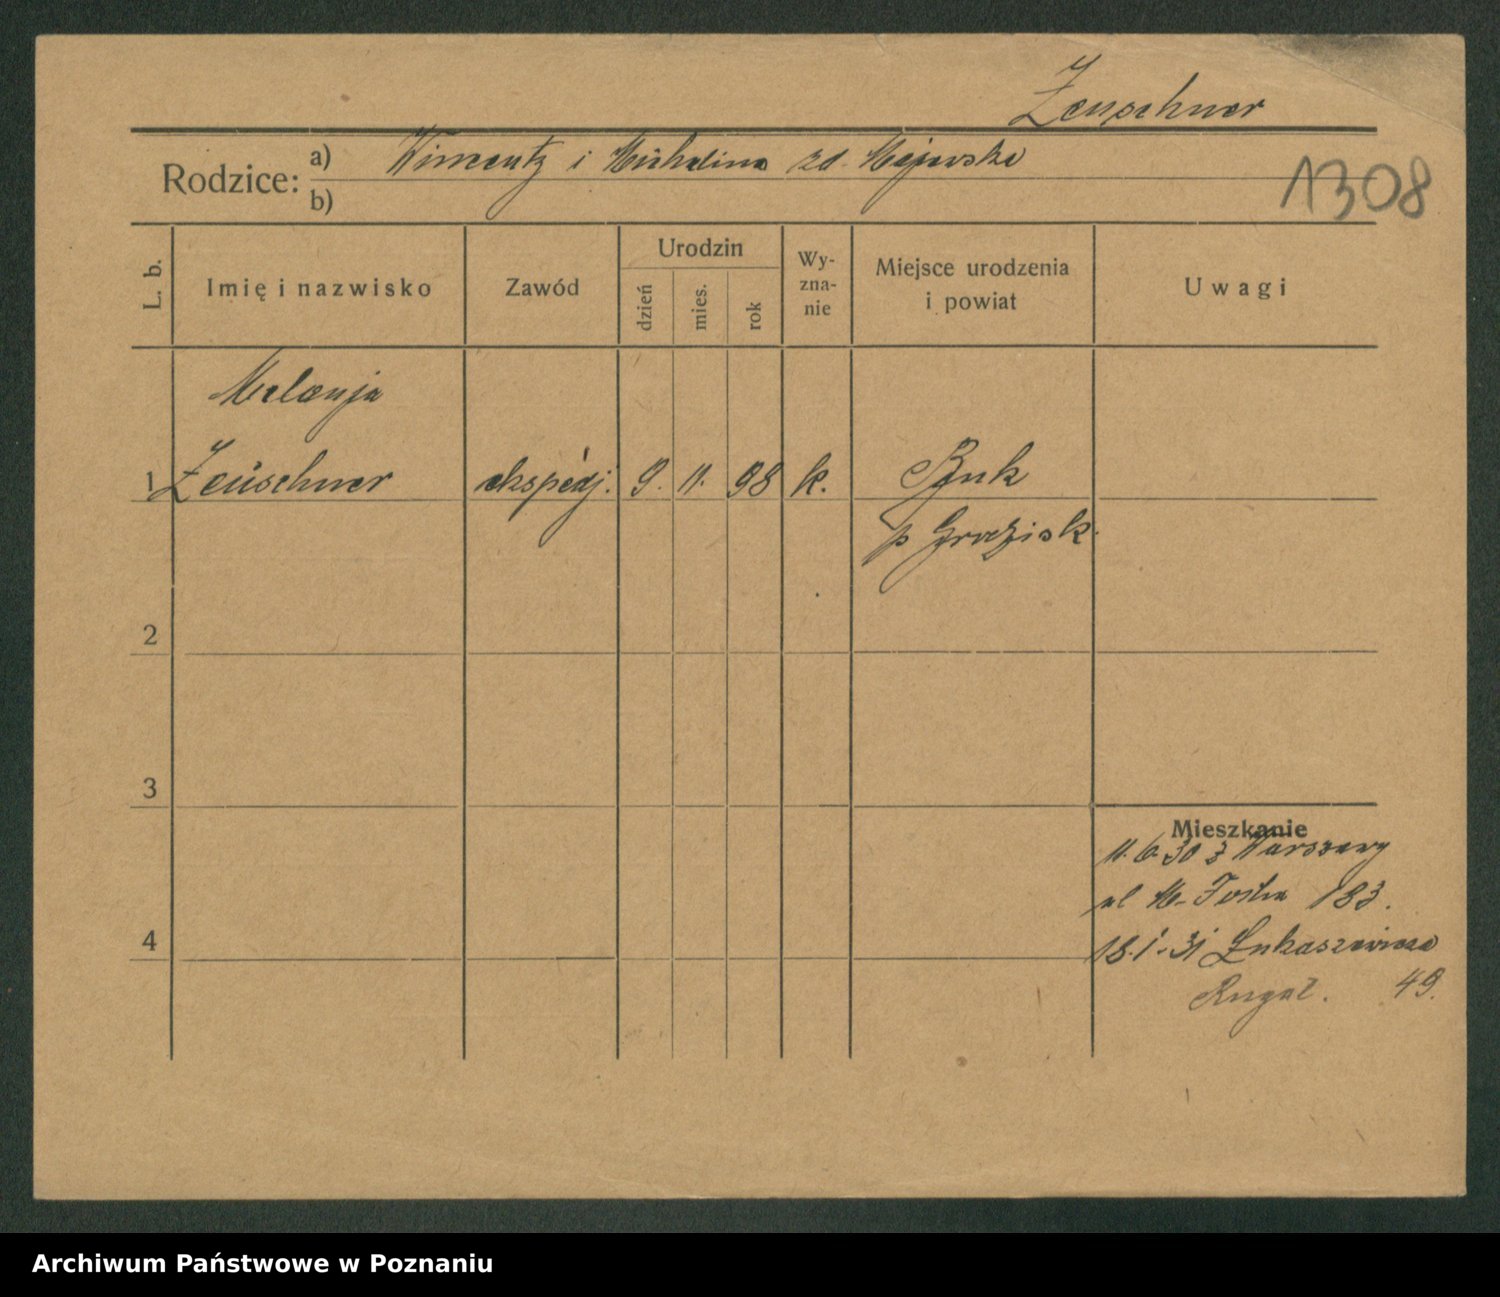 Zeuschner
Rodzice: a) Wincenty i Michalina zd. Majewska
b)
1308
L. b. Imię i nazwisko Zawód Urodzin dzień mies. rok Wy-zna-nie Miejsce urodzenia i powiat Uwagi
Melanja
1 Zeuschner ekspedj. 9. 11. 98 k. Buk
p Grodzisk.
2
3
Mieszkanie
11.6.30 z Warszawy
ul M. Focha 183.
4
18.1.31 Łukaszewicza
49.
Archiwum Państwowe w Poznaniu